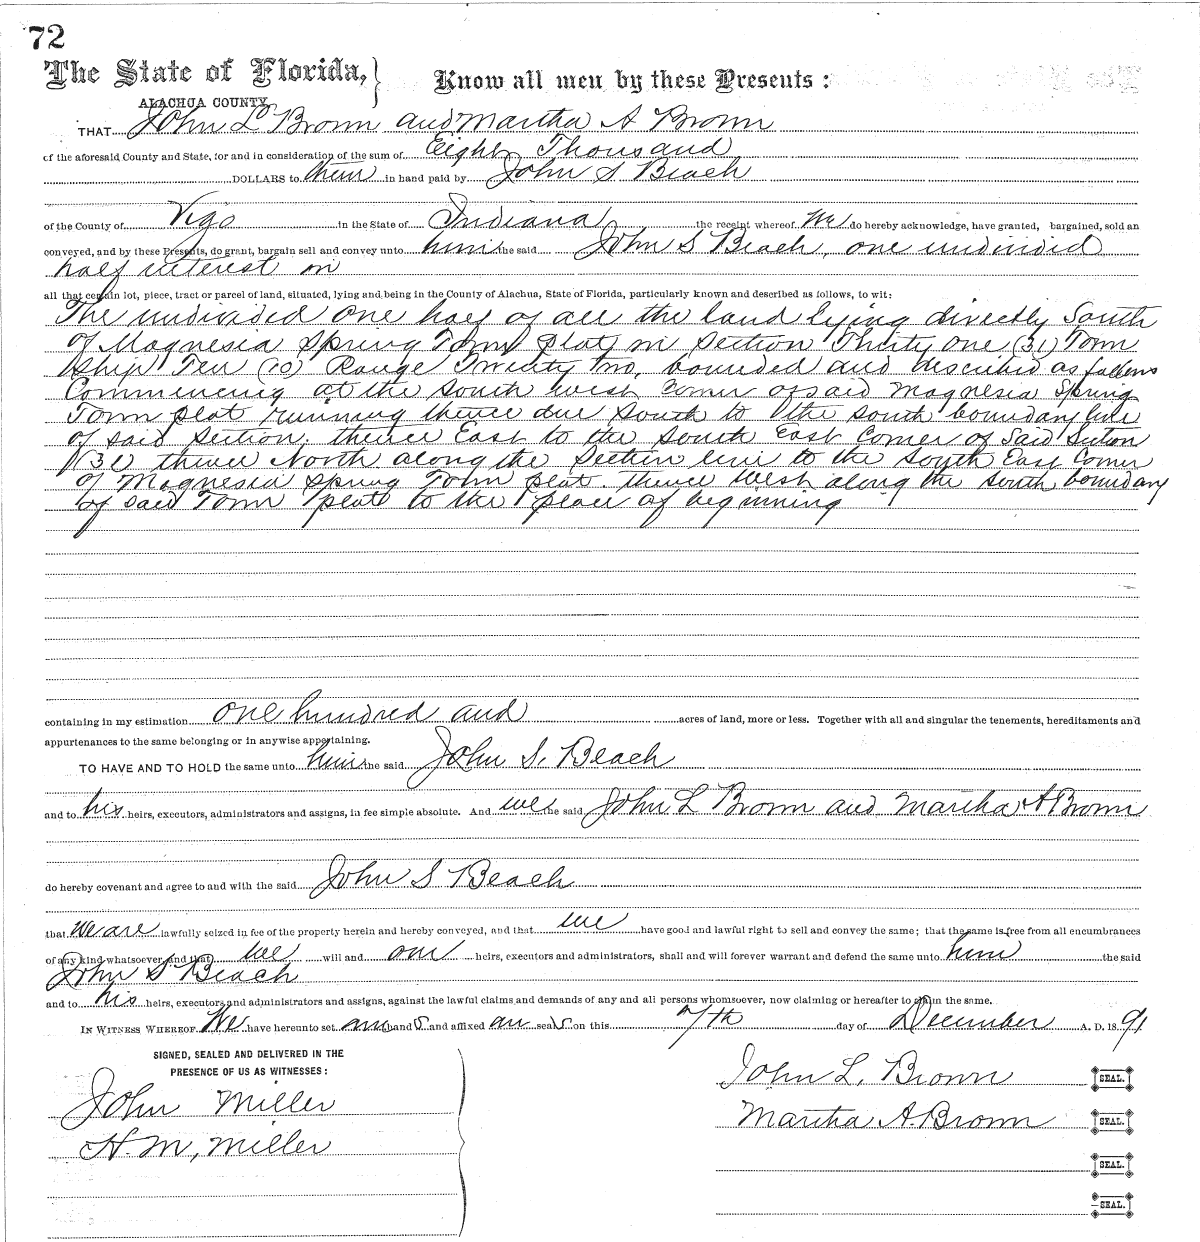 72
The State of Florida,
Know all men by these Presents:
ALACHUA COUNTY.
THAT John L Brown and Martha A Brown
of the aforesaid County and State, for and in consideration of the sum of Eight Thousand
DOLLARS to them in hand paid by John S Beach
of the County of Vigo in the State of Indiana the receipt whereof We do hereby acknowledge, have granted, bargained, sold an
conveyed, and by these Presents, do grant, bargain sell and convey unto him the said John S Beach, one undivided
half interest on
all that certain lot, piece, tract or parcel of land, situated, lying and being in the County of Alachua, State of Florida, particularly known and described as follows, to wit:
The undivided one half of all the land lying directly South
of Magnesia Spring Town plat, in Section Thirty one (31) Town
Ship Ten (10) Range Twenty two, bounded and described as follows
Commencing at the South west corner of said Magnesia Spring
Town plat running thence due South to the south boundary line
of said Section. thence East to the South East Corner of Said Section
(31) thence North along the Section line to the South East Corner
of Magnesia Spring Town plat. thence West along the South boundary
of said Town plat to the place of beginning
containing in my estimation one hundred and acres of land, more or less. Together with all and singular the tenements, hereditaments and
appurtenances to the same belonging or in anywise appertaining.
TO HAVE AND TO HOLD the same unto him the said John S. Beach
and to his heirs, executors, administrators and assigns, in fee simple absolute. And we the said John L Brown and Martha A Brown
do hereby covenant and agree to and with the said John S Beach
that We are lawfully seized in fee of the property herein and hereby conveyed, and that we have good and lawful right to sell and convey the same; that the same is free from all encumbrances
of any kind whatsoever, and that we will and our heirs, executors and administrators, shall and will forever warrant and defend the same unto him the said
John S. Beach
and to his heirs, executors and administrators and assigns, against the lawful claims and demands of any and all persons whomsoever, now claiming or hereafter to claim the same.
IN WITNESS WHEREOF We have hereunto set our hands and affixed our seals on this 7th day of December A. D. 1891
SIGNED, SEALED AND DELIVERED IN THE
PRESENCE OF US AS WITNESSES:
John Miller
H. M, Miller
John L. Brown SEAL.
Martha A. Brown SEAL.
SEAL.
SEAL.